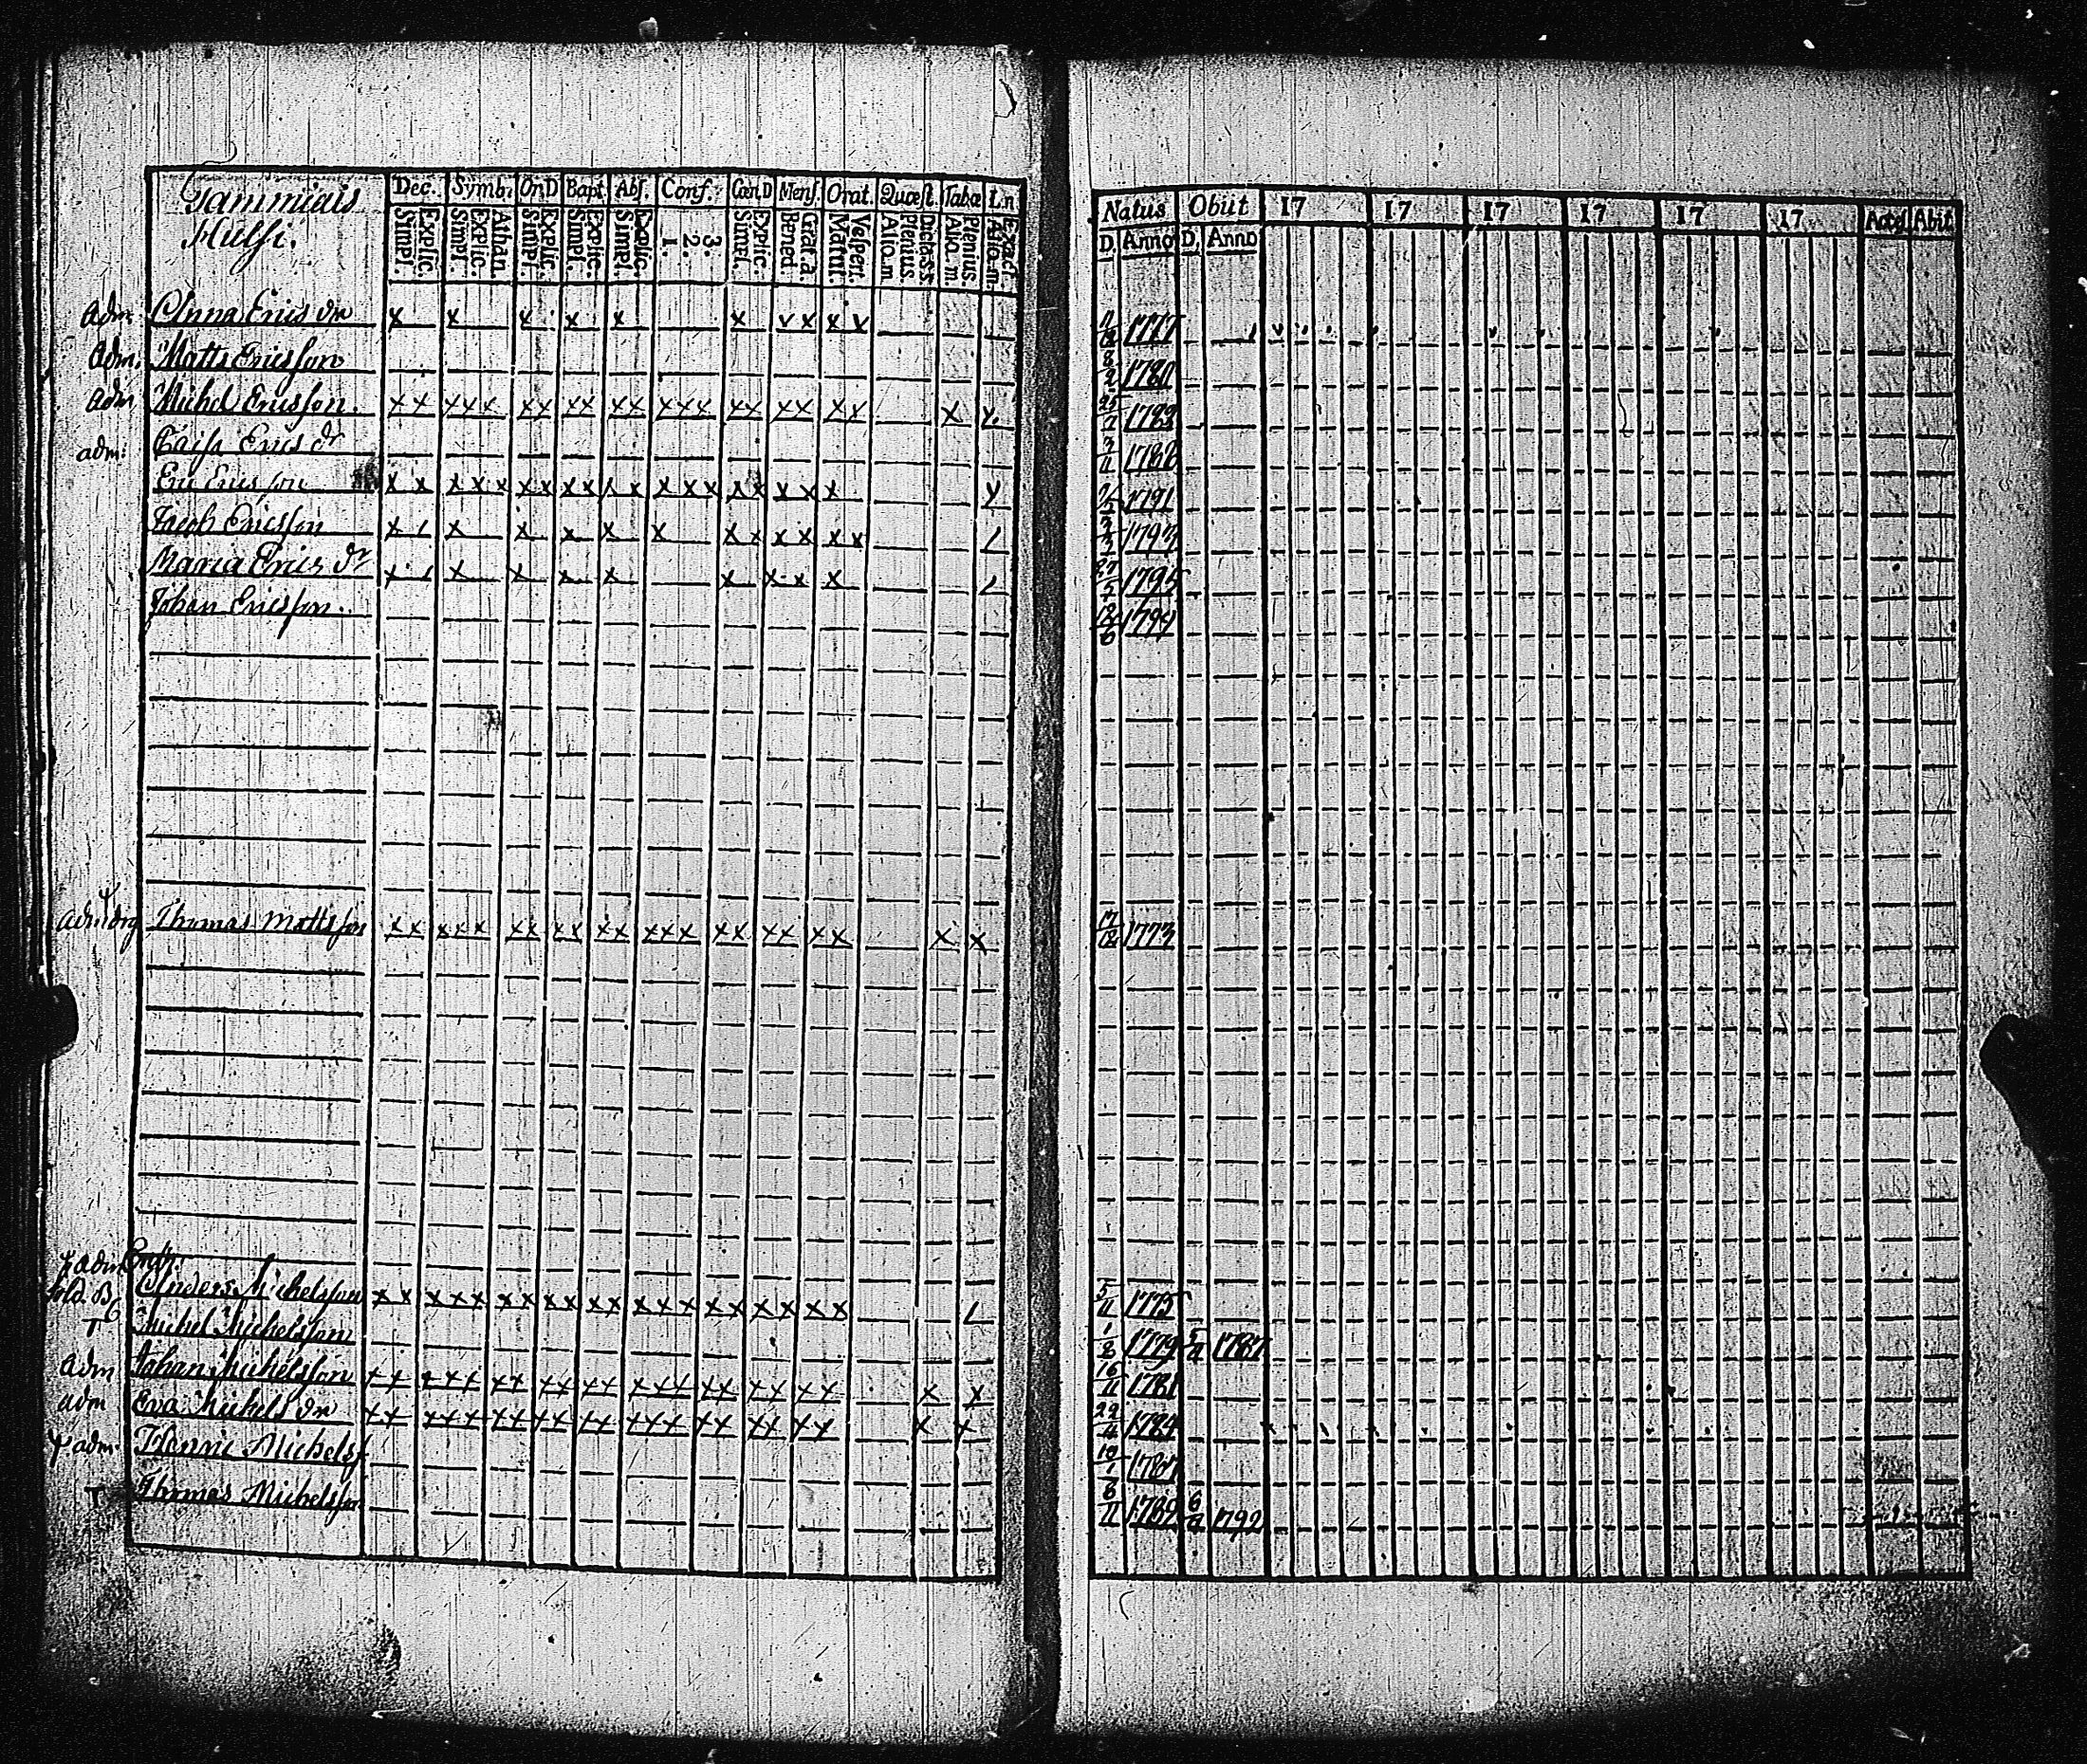 Gammiais
Hulsi.
Dec. Symb. OrD Bapt. Abs. Conf. CœnD Mens. Orat. Quæst. Tabæ L.n
Explic. Simpl. Athan. Explic. Simpl. Explic. Simpl. Explic. Simpl. Explic. Simpl. 3. 2. 1. Explic. Simpl. Grat.a. Bened. Vespert. Matut. Dictass Plenius. Aliq.m Plenius. Aliq.m Exact. Aliq.m
Natus Obiit 17 17 17 17 17 17 Accef Abit
D. Anno D. Anno
Adm: Anna Erics dr x x x x x x v x x x 11/12 1777
Adm. Matts Ericsson 8/2 1780
Adm Michel Ericsson. x x x x x x x x x x x x x x x x x x x x x x 25/7 1783
adm: Caisa Erics dr 3/11 1788
Eric Ericsson x x x x x x x x x x x x x x x x x x x x 7/5 1791
Jacob Ericsson x x x x x x x x x x x x 3/3 1793
Maria Erics dr x x x x x x x x x 27/5 1795
Johan Ericsson. 18/6 1799
Thomas Mattsson x x x x x x x x x x x x x x x x x x x x x x 17/12 1773
adm Enr.
Anders Michelsson x x x x x x x x x x x x x x x x x x x x 5/11 1775
Michel Michelsson 1/8 1779 1787
Adm Johan Michelsson x x x x x x x x x x x x x x x x x x x x x x 16/11 1781
adm Eva Michels dr x x x x x x x x x x x x x x x x x x x x x x 29/4 1784
adm. Henric Michelss 1787
Thomas Michelsson 6/11 1789 1792